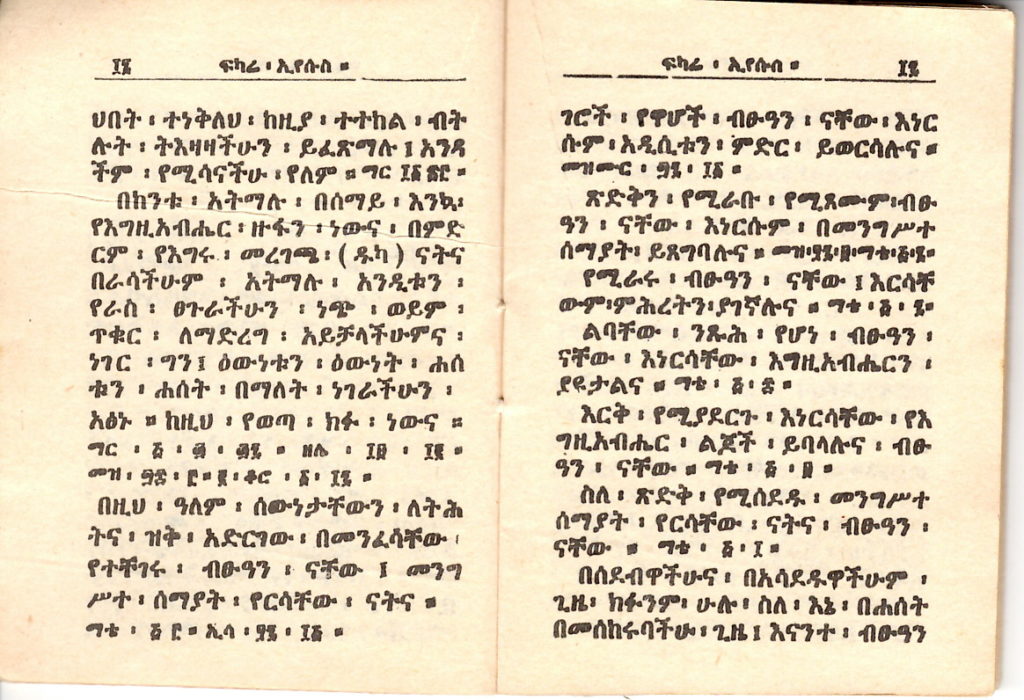 ፲፮ ፍካሬ ፡ ኢየሱስ ።
ህበት ፡ ተነቅለህ ፡ ከዚያ ፡ ተተከል ፡ ብት
ሉት ፡ ትእዛዛችሁን ፡ ይፈጽማሉ ፤ አንዳ
ችም ፡ የሚሳናችሁ ፡ የለም ።
በከንቱ ፡ አትማሉ ፡ በሰማይ ፡ እንኳ፡
የእግዚአብሔር ፡ ዙፋን ፡ ነውና ፡ በምድ
ርም ፡ የእግሩ ፡ መረገጫ ፡ ( ዱካ ) ናትና
በራሳችሁም ፡ አትማሉ ፡ አንዲቱን ፡
የራስ ፡ ፀጉራችሁን ፡ ነጭ ፡ ወይም ፡
ጥቁር ፡ ለማድረግ ፡ አይቻላችሁምና ፡
ነገር ፡ ግን፤ ዕውነቱን ፡ ዕውነት ፡ ሐሰ
ቱን ፡ ሐሰት ፡ በማለት ፡ ነገራችሁን ፡
አፅኑ ። ከዚህ ፡ የወጣ ፡ ክፉ ፡ ነውና ።
በዚህ ፡ ዓለም ፡ ሰውነታቸውን ፡ ለትሕ
ትና ፡ ዝቅ ፡ አድርገው ፡ በመንፈሳቸው ፡
የተቸገሩ ፡ ብፁዓን ፡ ናቸው ፤ መንግ
ሥተ ፡ ሰማያት ፡ የርሳቸው ፡ ናትና ።
ማቴ ፡ ፭ ፫ ። ኢሳ ፡ ፶፯ ፡ ፲፭ ።
ፍካሬ ፡ ኢየሱስ ። ፲፯
ገሮች ፡ የዋሆች ፡ ብፁዓን ፡ ናቸው ፡ እነር
ሱም ፡ አዲሲቱን ፡ ምድር ፡ ይወርሳሉና ።
መዝሙር ፡ ፴፮ ፡ ፲፩ ።
ጽድቅን ፡ የሚራቡ ፡ የሚጸሙም፡ብፁ
ዓን ፡ ናቸው ፡ እነርሱም ፡ በመንግሥተ
ሰማያት፡ ይጸግባሉና ።
የሚራሩ ፡ ብፁዓን ፡ ናቸው ፤ እርሳቸ
ውም፡ምሕረትን፡ያገኛሉና ። ማቴ ፡ ፭ ፡ ፯።
ልባቸው ፡ ንጹሕ ፡ የሆነ ፡ ብፁዓን ፡
ናቸው ፡ እነርሳቸው ፡ እግዚአብሔርን ፡
ያዩታልና ። ማቴ ፡ ፭ ፡ ፰ ።
እርቅ ፡ የሚያደርጉ ፡ እነርሳቸው ፡ የእ
ግዚአብሔር ፡ ልጆች ፡ ይባላሉና ፡ ብፁ
ዓን ፡ ናቸው ። ማቴ ፡ ፭ ፡ ፱ ።
ስለ ፡ ጽድቅ ፡ የሚሰደዱ ፡ መንግሥተ
ሰማያት ፡ የርሳቸው ፡ ናትና ፡ ብፁዓን ፡
ናቸው ። ማቴ ፡ ፭ ፡ ፲ ።
በሰደብዋችሁና ፡ በአሳደዱዋችሁም ፡
ጊዜ፡ ክፉንም፡ ሁሉ ፡ ስለ ፡ እኔ ፡ በሐሰት
በመሰከሩባችሁ ፡ ጊዜ ፤ እናንተ ፡ ብፁዓን